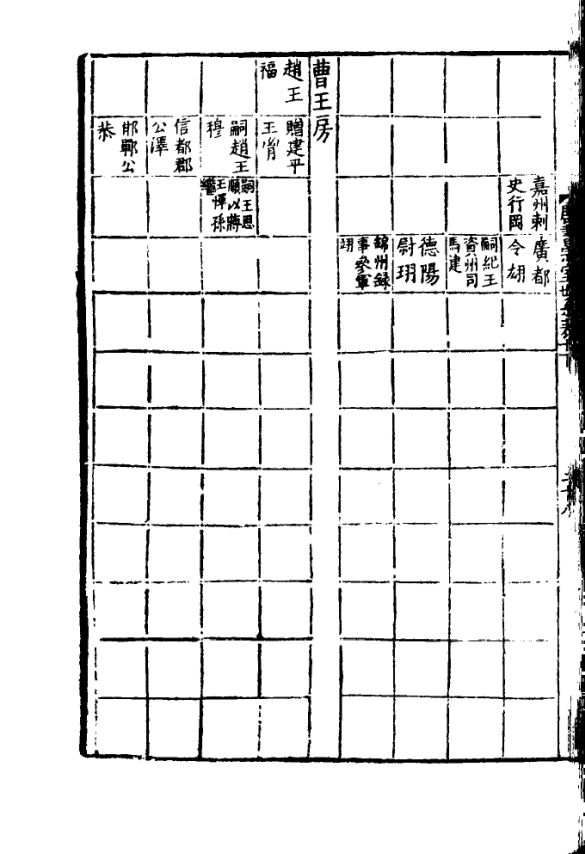 嘉州刺
史行岡
廣都
令
嗣紀王
資州司
馬建
德陽
尉珝
錦州錄
事參軍
翊
曹王房
趙王
福
贈建平
王胤
嗣趙王
穆
嗣王思
順以蔣
王惲孫
繼
信都郡
公澤
邯鄲公
恭